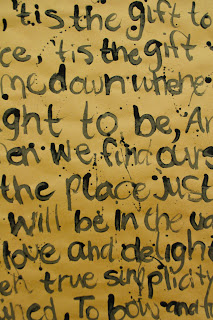 , 'tis the gift to
ce, 'tis the gift
me down where
ght to be, An
hen we find ours
the place just
will be in the va
love and deligh
en true simplicity
ned, To bow and